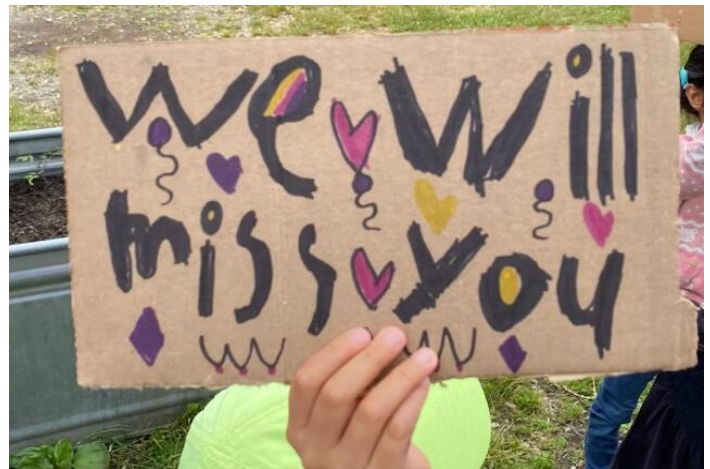 we will
miss you